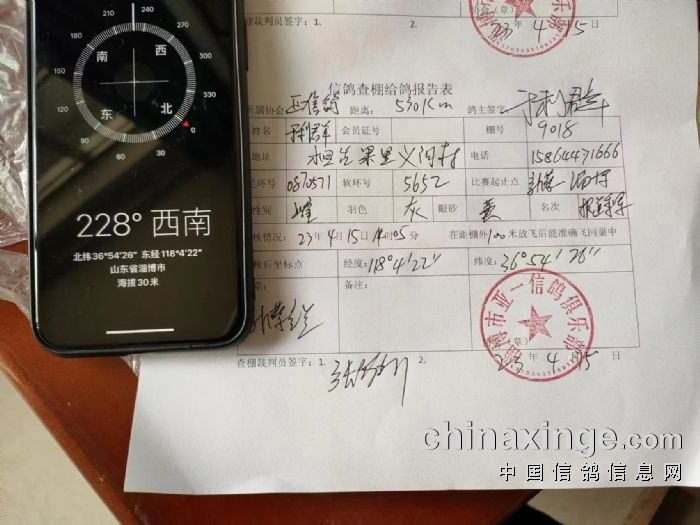 查棚裁判员签字：1. 2.
23 年 4 月 15 日
信鸽查棚给鸽报告表
所属协会 亚一信鸽 距离：530Km 鸽主签字：
姓名 会员证号 棚号 9018
地址 桓台果里义河村 电话 15864471666
足环号 0870571 软环号 5652 比赛起止点
性别 雄 羽色 灰 眼砂 黄 名次
核情况：23年4月15日 时05分 在距棚外100米放飞后能准确飞回巢中
核后坐标点 经度：118°4'22" 纬度：36°54'26"
章： 备注：
淄博市亚一信鸽俱乐部
（章）
23 年 4 月 15 日
查棚裁判员签字：1. 2.
210 240 270 300 330 0 30 60 90 150 180
南 西 东 北
228° 西南
北纬36°54'26" 东经118°4'22"
山东省淄博市
海拔30米
chinaxinge.com
中国信鸽信息网